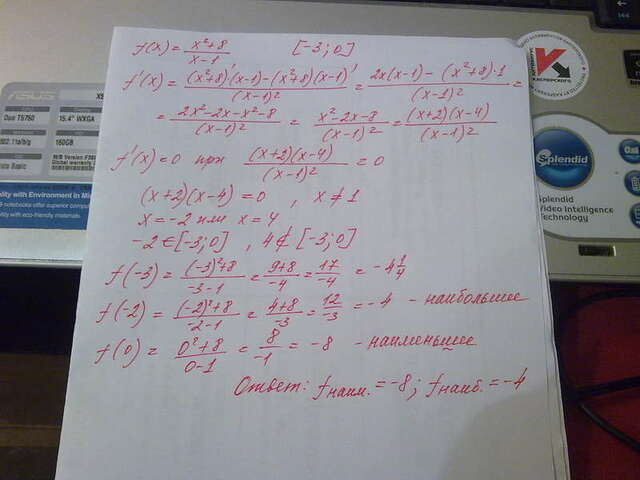 f(x) = x²+8 / x-1 [-3; 0]
f'(x) = (x²+8)'(x-1)-(x²+8)(x-1)' / (x-1)² = 2x(x-1) - (x²+8)·1 / (x-1)² =
= 2x²-2x-x²-8 / (x-1)² = x²-2x-8 / (x-1)² = (x+2)(x-4) / (x-1)²
f'(x)=0 при (x+2)(x-4) / (x-1)² = 0
(x+2)(x-4) = 0 , x ≠ 1
x = -2 или x = 4
-2 ∈ [-3; 0] , 4 ∉ [-3; 0]
f(-3) = (-3)²+8 / -3-1 = 9+8 / -4 = 17 / -4 = -4 1/4
f(-2) = (-2)²+8 / -2-1 = 4+8 / -3 = 12 / -3 = -4 - наибольшее
f(0) = 0²+8 / 0-1 = 8 / -1 = -8 - наименьшее
Ответ: fнаим. = -8; fнаиб. = -4
ASUS
Duo T5750
15.4" WXGA
802.11a/b/g
160GB
Global warranty
ality with Environment in Mi
notebooks offer superior
quality with eco-friendly materials.
КАСПЕРСКОГО
Splendid
Splendid
Video Intelligence
Technology